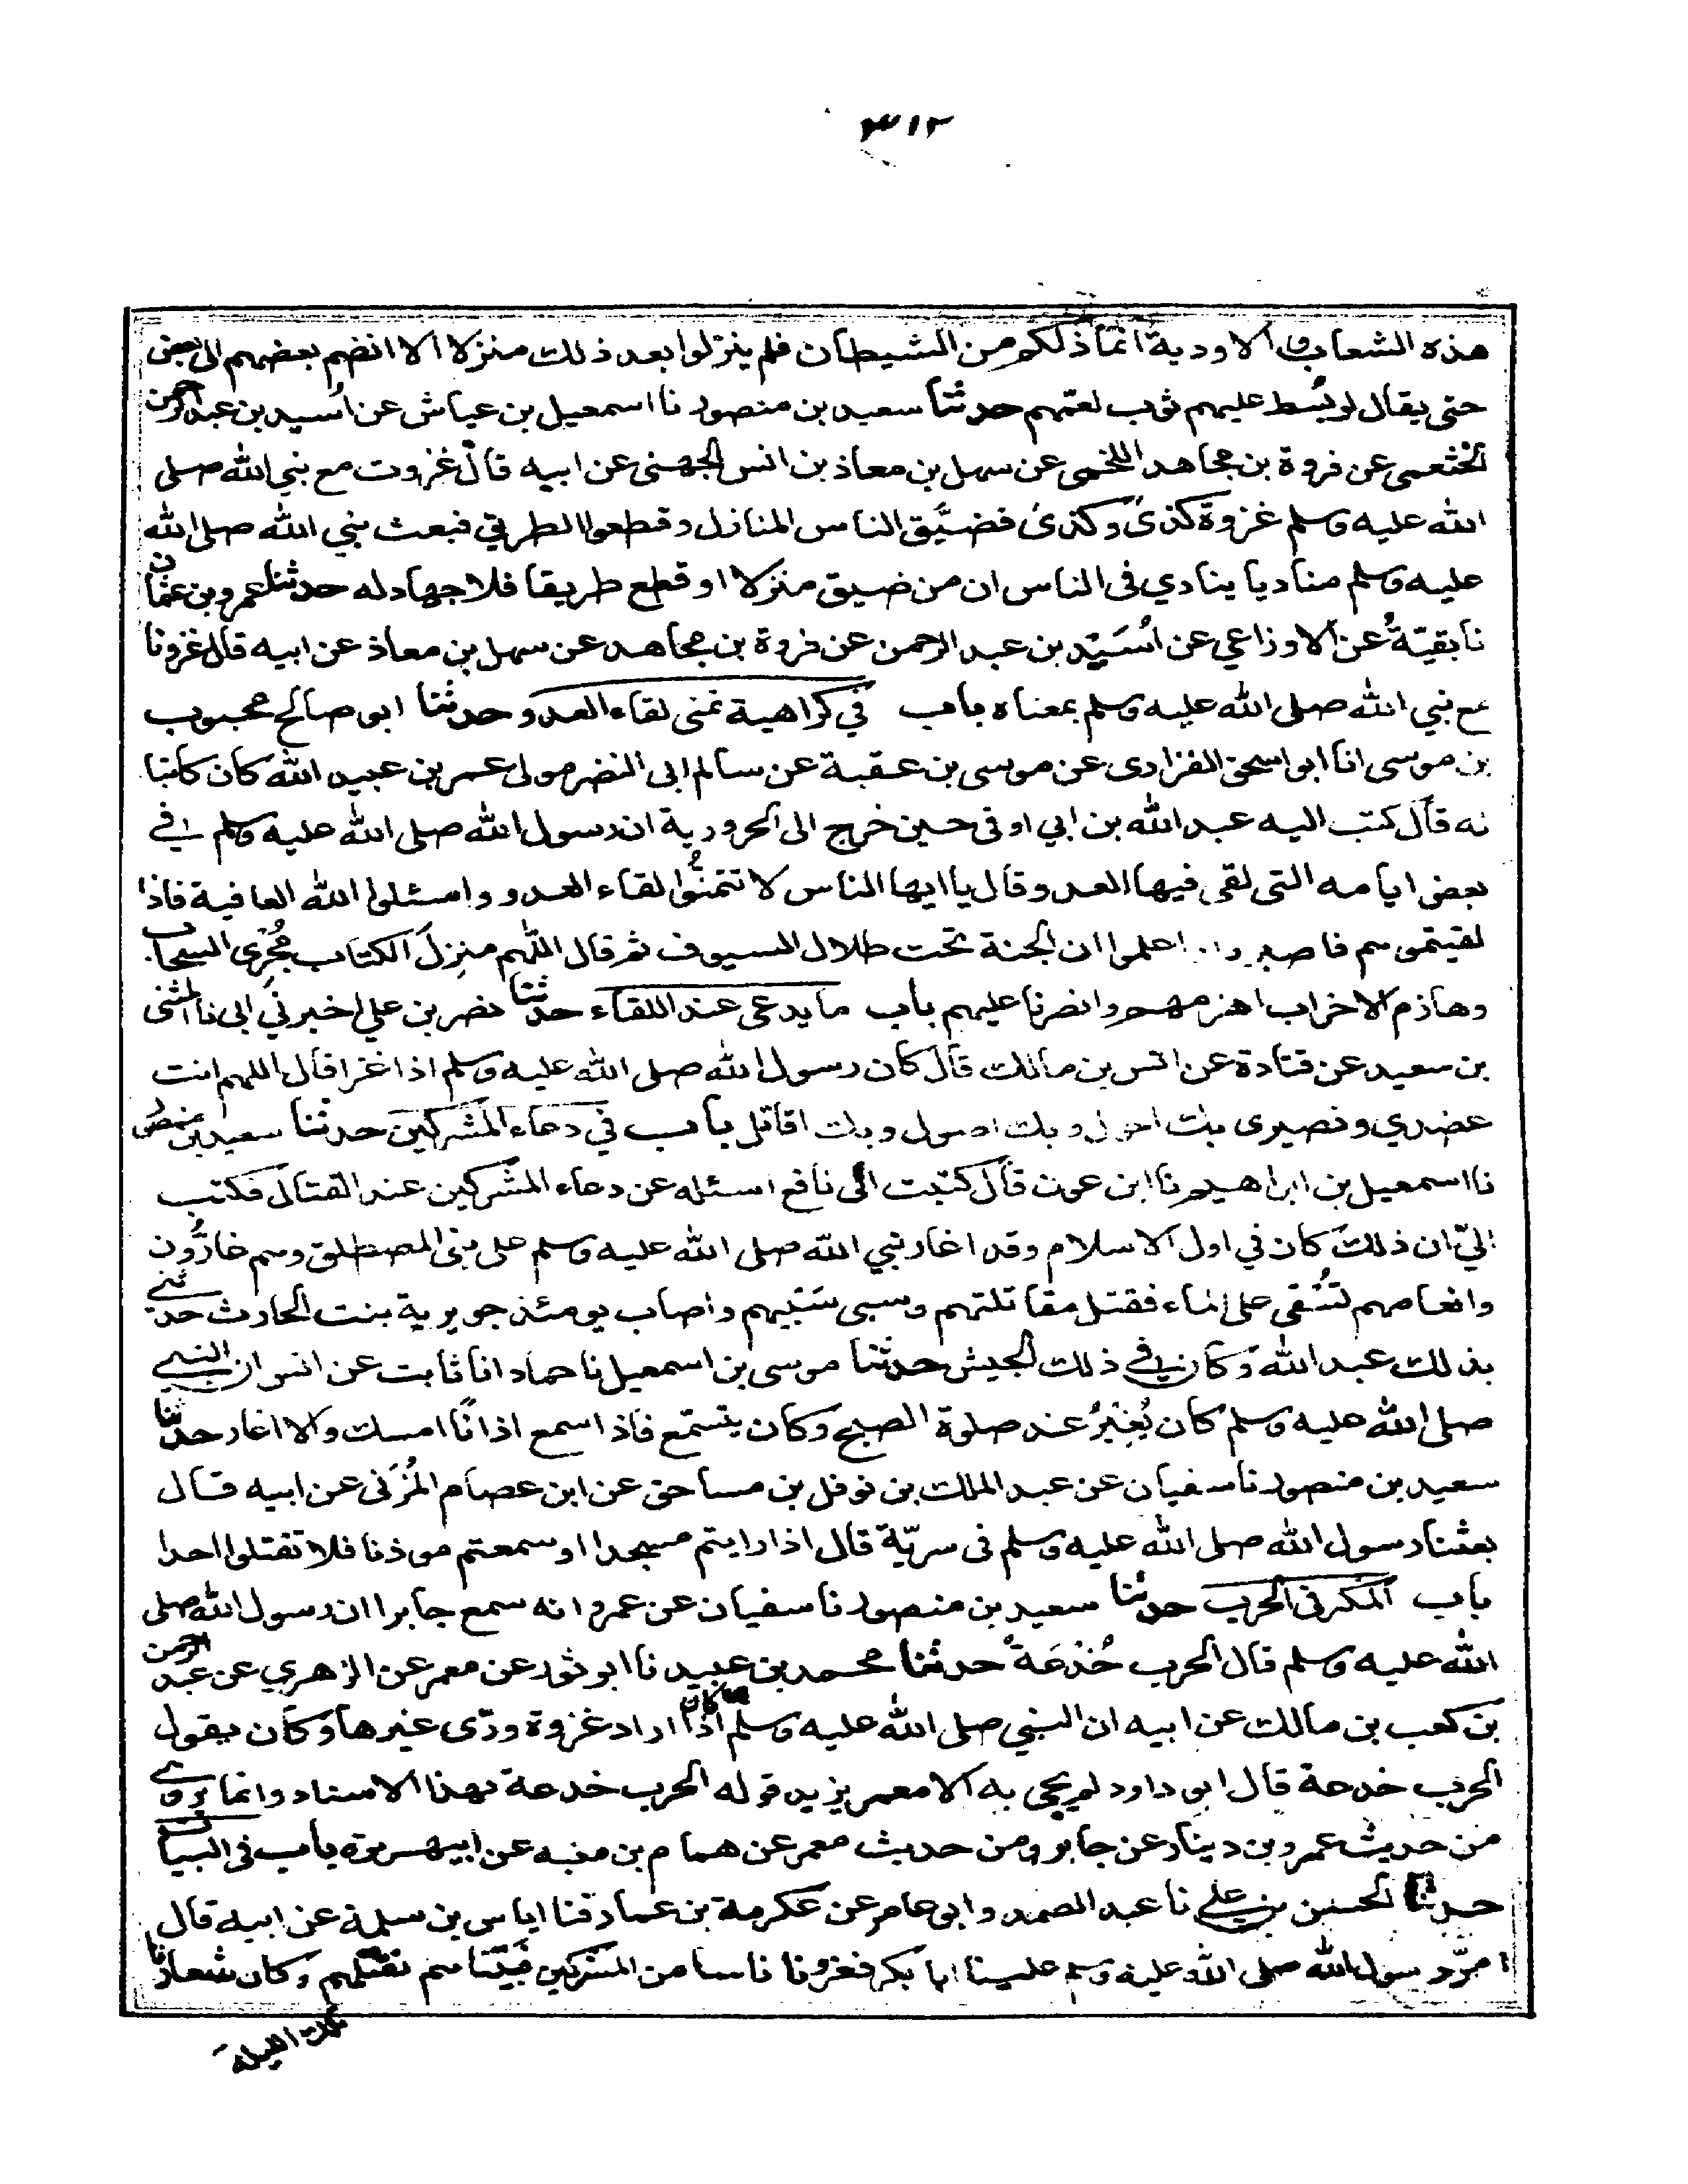 ٣١٢
هذه الشعاب و الاودية انما ذلكم من الشيطان فلم ينزلوا بعد ذلك منزلا الا انضم بعضهم الى بعض
حتى يقال لو بُسط عليهم ثوب لعمّهم حدثنا سعيد بن منصور نا اسمعيل بن عياش عن اُسيد بن عبد الرحمن
الخثعمى عن فروة بن مجاهد اللخمى عن سهل بن معاذ بن انس الجهنى عن ابيه قال غزوت مع نبي الله صلى
الله عليه وسلم غزوة كذى وكذى فضيَّق الناس المنازل وقطعوا الطريق فبعث نبي الله صلى الله
عليه وسلم مناديا ينادي فى الناس ان من ضيق منزلا او قطع طريقا فلا جهاد له حدثنا عمرو بن عثمان
نا بقيّةُ عن الاوزاعي عن اُسَيْدِ بن عبد الرحمن عن فروة بن مجاهد عن سهل بن معاذ عن ابيه قال غزونا
مع نبي الله صلى الله عليه وسلم بمعناه باب في كراهية تمنى لقاء العدو حدثنا ابو صالح محبوب
بن موسى انا ابو اسحق الفزارى عن موسى بن عقبة عن سالم ابى النضر مولى عمر بن عبيد الله كان كاتبا
له قال كتب اليه عبد الله بن ابي اوفى حين خرج الى الحرورية ان رسول الله صلى الله عليه وسلم في
بعض ايامه التى لقى فيها العدو قال يا ايها الناس لا تتمنُّوا لقاء العدو واسئلوا الله العافية فاذا
لقيتموهم فاصبروا واعلموا ان الجنة تحت ظلال السيوف ثم قال اللّهم منزِلَ الكتاب مُجْرِى السحاب
وهازم الاحزاب اهزمهم وانصرنا عليهم باب ما يدعى عند اللقاء حدثنا نصر بن علي اخبرني ابى نا المثنى
بن سعيد عن قتادة عن انس بن مالك قال كان رسول الله صلى الله عليه وسلم اذا غزا قال اللهم انت
عضدي ونصيرى بك احول وبك اصول وبك اقاتل باب في دعاء المشركين حدثنا سعيد بن منصور
نا اسمعيل بن ابراهيم نا ابن عون قال كتبت الى نافع اسئله عن دعاء المشركين عند القتال فكتب
اليّ ان ذلك كان في اول الاسلام وقد اغار نبي الله صلى الله عليه وسلم على بنى المصطلق وهم غارُّون
وانعامهم تُسْقى على الماء فقتل مقاتلتهم وسبى سَبْيهم واصاب يومئذ جويرية بنت الحارث حدثنى
بذلك عبد الله وكان في ذلك الجيش حدثنا موسى بن اسمعيل نا حماد انا ثابت عن انس ان النبي
صلى الله عليه وسلم كان يُغِيْرُ عند صلوة الصبح وكان يتسمع فاذا سمع اذانًا امسك والا اغار حدثنا
سعيد بن منصور نا سفيان عن عبد الملك بن نوفل بن مساحق عن ابن عصام المُزَنى عن ابيه قال
بعثنا رسول الله صلى الله عليه وسلم فى سريّة قال اذا رايتم مسجدا او سمعتم موذنا فلا تقتلوا احدا
باب المكر فى الحرب حدثنا سعيد بن منصور نا سفيان عن عمرو انه سمع جابرا ان رسول الله صلى
الله عليه وسلم قال الحرب خُدْعَةٌ حدثنا محمد بن عبيد نا ابو ثور عن معمر عن الزهري عن عبد الرحمن
بن كعب بن مالك عن ابيه ان النبي صلى الله عليه وسلم كان اذا اراد غزوة ورّى غيرها وكان يقول
الحرب خدعة قال ابو داود لم يجئ به الا معمر يزيد قوله الحرب خدعة بهذا الاسناد وانما يروى
من حديث عمرو بن دينار عن جابر ومن حديث معمر عن همام بن منبه عن ابيهريرة باب فى البيات
حدثنا الحسن بن علي نا عبد الصمد وابو عامر عن عكرمة بن عمار قنا اياس بن سلمة عن ابيه قال
امّر رسول الله صلى الله عليه وسلم علينا ابا بكر فغزونا ناسا من المشركين فبيّتناهم نقتلهم وكان شعارنا
تلك الليلة